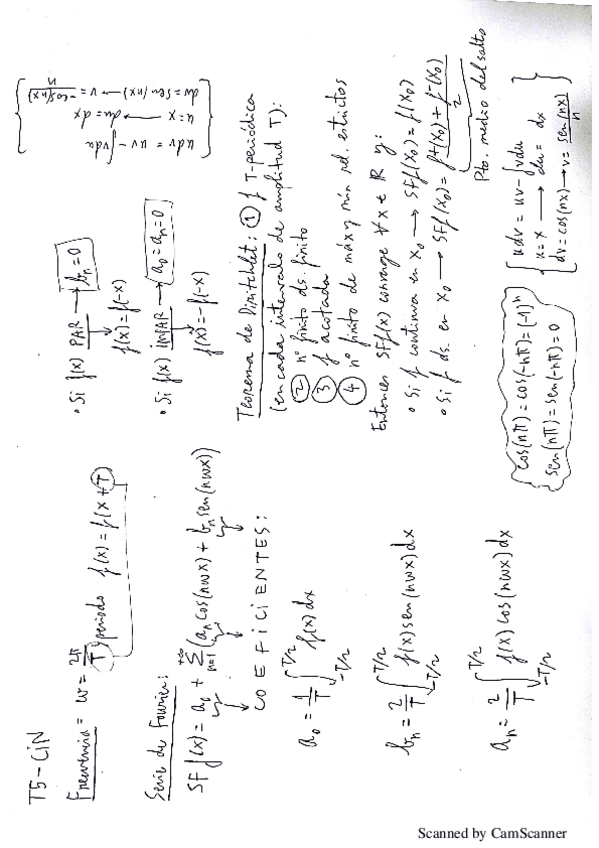 T5-CiN
Frecuencia = w = 2π/T) periodo f(x) = f(x+T)
Serie de Fourier:
SF f(x) = a₀ + Σ_{n=1}^{+∞} (aₙ cos(nwx) + bₙ sen(nwx))
COEFICIENTES:
a₀ = 1/T ∫_{-T/2}^{T/2} f(x) dx
bₙ = 2/T ∫_{-T/2}^{T/2} f(x) sen(nwx) dx
aₙ = 2/T ∫_{-T/2}^{T/2} f(x) cos(nwx) dx
• Si f(x) PAR → bₙ = 0
f(x) = f(-x)
• Si f(x) IMPAR → a₀ = aₙ = 0
f(x) = -f(-x)
u dv = uv - ∫vdu
u = x → du = dx
dv = sen(nx) → v = -cos(nx)/n
Teorema de Dirichlet: ① f T-periódica
(en cada intervalo de amplitud T):
② nº finito ds. finito
③ f acotada
④ nº finito de máx y mín rel. estrictos
Entonces SFf(x) converge ∀x ∈ ℝ y:
• Si f continua en x₀ → SFf(x₀) = f(x₀)
• Si f ds. en x₀ → SFf(x₀) = f⁺(x₀) + f⁻(x₀)/2
Pto. medio del salto
cos(nπ) = cos(-nπ) = (-1)ⁿ
sen(nπ) = sen(-nπ) = 0
∫u dv = uv - ∫vdu
u = x → du = dx
dv = cos(nx) → v = sen(nx)/n
Scanned by CamScanner